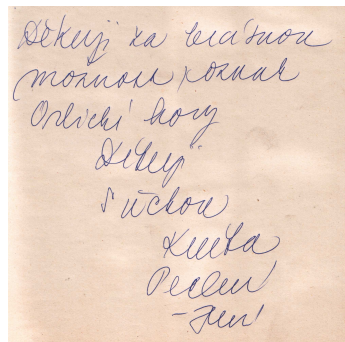 Děkuji za krásnou
možnost poznat
Orlické hory
Děkuji
S úctou
Květa